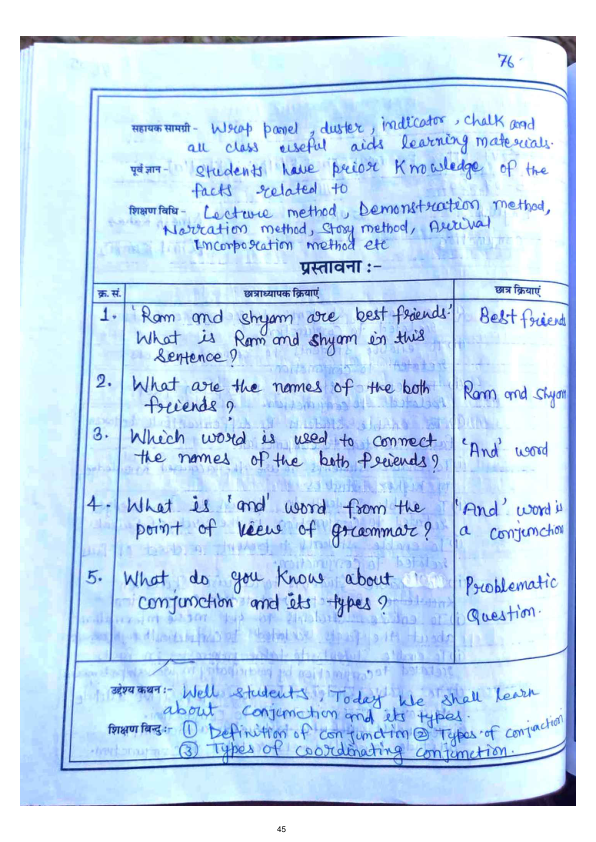 76
सहायक सामग्री - Wrap panel, duster, indicator, chalk and
all class useful aids learning materials.
पूर्व ज्ञान - Students have prior knowledge of the
facts related to
शिक्षण विधि - Lecture method, Demonstration method,
Narration method, Story method, Arrival
Incorporation method etc
प्रस्तावना :-
क्र. सं. छात्राध्यापक क्रियाएं छात्र क्रियाएं
1. 'Ram and Shyam are best friends.' Best friends
What is Ram and Shyam in this
Sentence?
2. What are the names of the both Ram and Shyam
friends?
3. Which word is used to connect 'And' word
the names of the both friends?
4. What is 'and' word from the 'And' word is
point of view of grammar? a conjunction
5. What do you know about Problematic
conjunction and its types? Question.
उद्देश्य कथन :- Well students Today We shall learn
about conjunction and its types.
शिक्षण बिन्दु :- ① Definition of conjunction ② Types of conjunction
③ Types of coordinating conjunction.
45